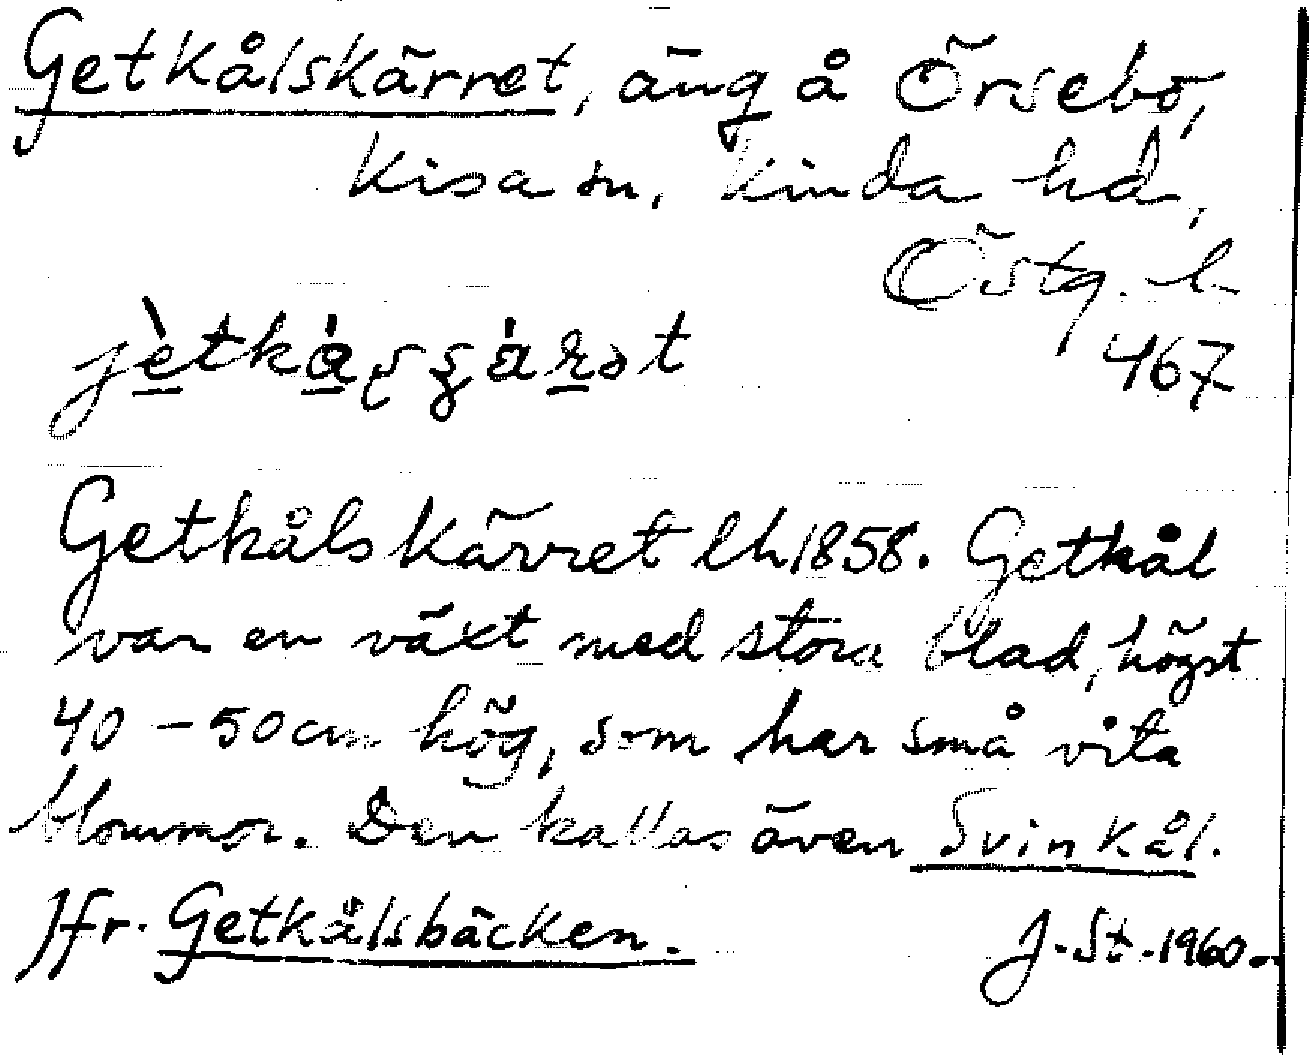 Getkålskärret, äng å Örsebo,
Kisa sn, Kinda hd,
Östg. l.
467
Getkålskärret lh 1858. Getkål
var en växt med stora blad, högst
40-50 cm hög, som har små vita
blommor. Den kallas även Svinkål.
Jfr. Getkålsbäcken.
J. St. 1960.